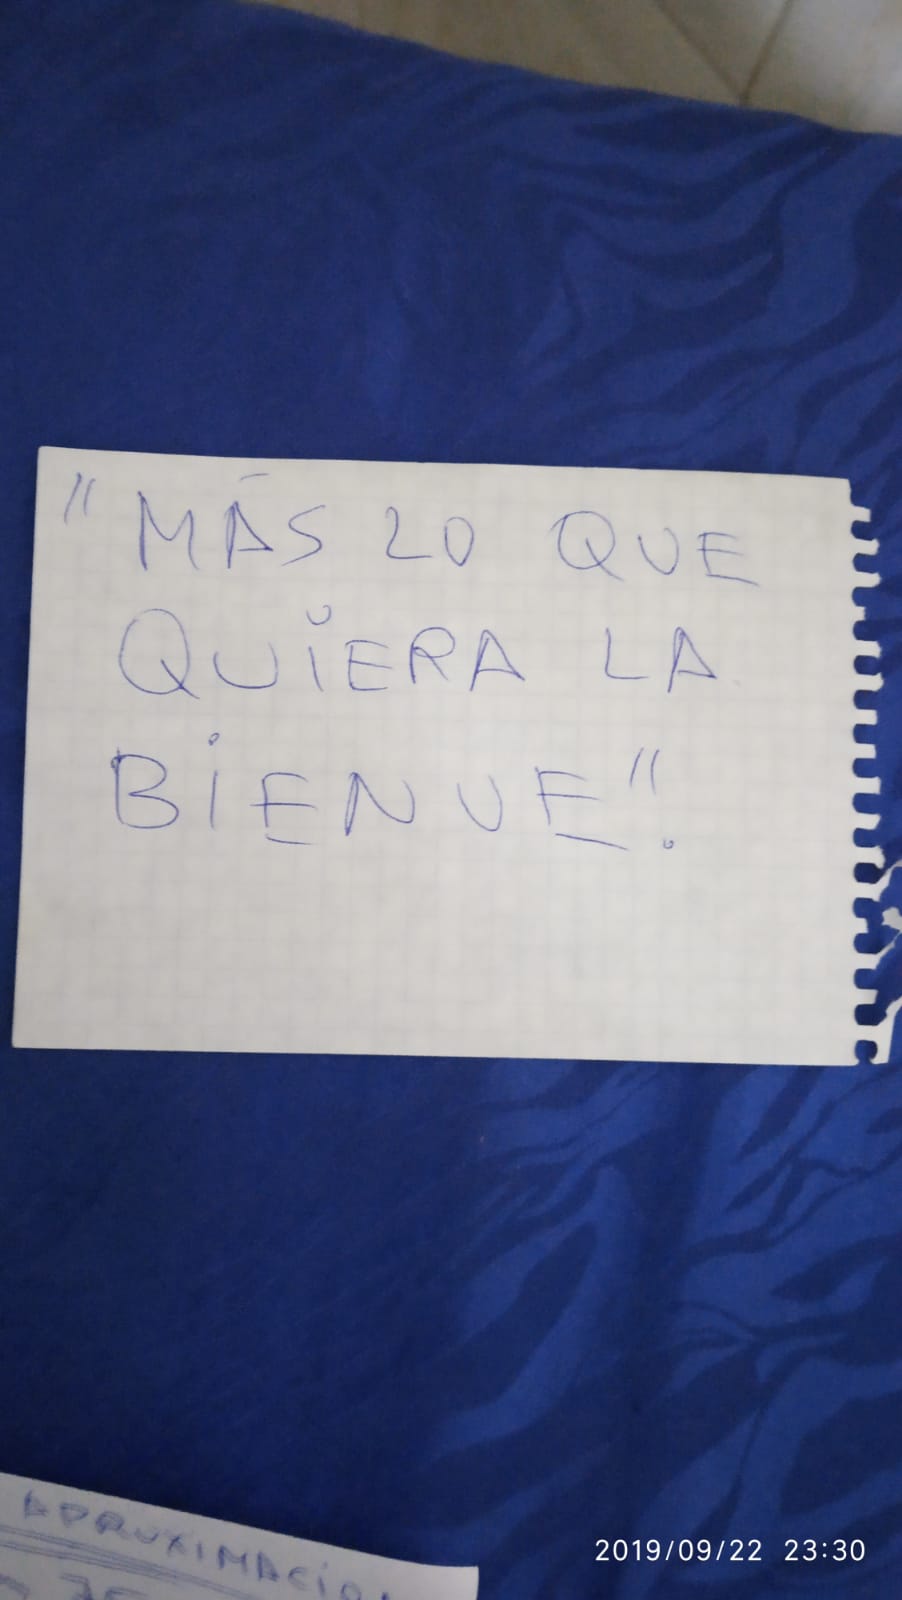 "MÁS LO QUE
QUIERA LA
BIENVE".
APROXIMACIÓN
2019/09/22 23:30